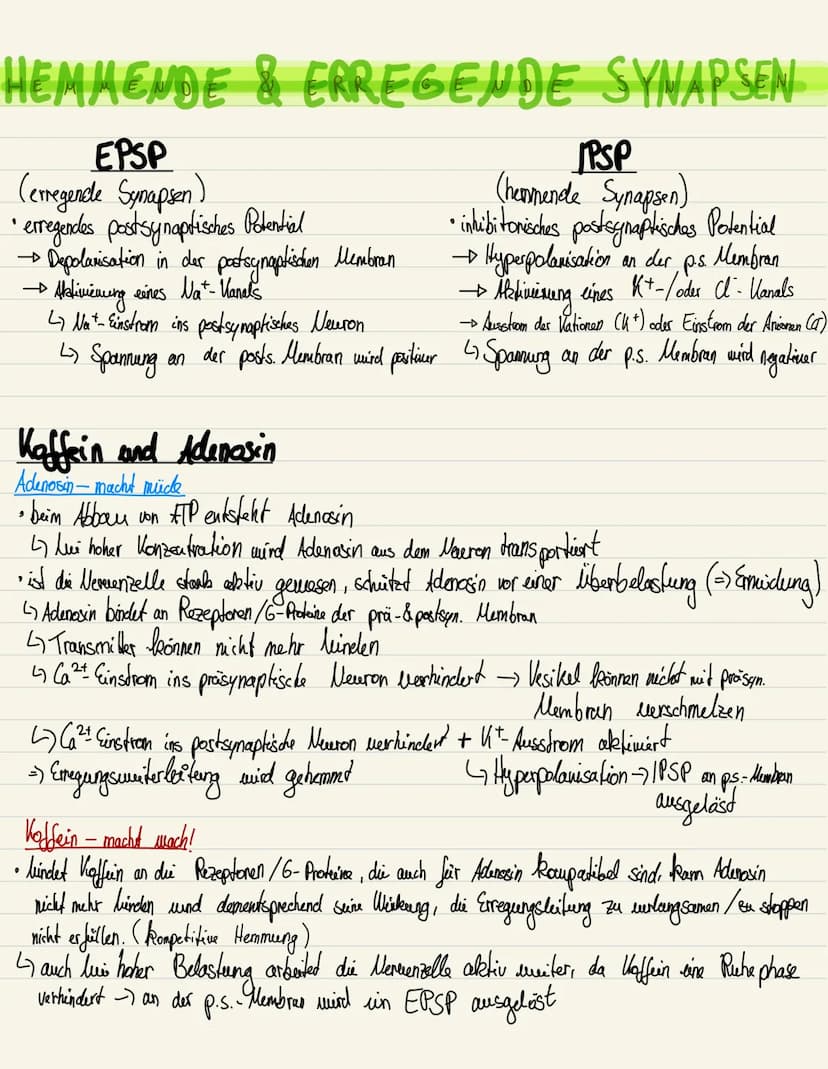 HEMMENDE & ERREGENDE SYNAPSEN
EPSP
(erregende Synapsen)
• erregendes postsynaptisches Potential
→ Depolarisation in der postsynaptischen Membran
→ Aktivierung eines Na⁺-Kanals
↳ Na⁺-Einstrom ins postsynaptisches Neuron
↳ Spannung an der posts. Membran wird positiver
IPSP
(hemmende Synapsen)
• inhibitorisches postsynaptisches Potential
→ Hyperpolarisation an der p.s. Membran
→ Aktivierung eines K⁺-/oder Cl⁻-Kanals
→ Ausstrom der Kationen (K⁺) oder Einstrom der Anionen (Cl⁻)
↳ Spannung an der p.s. Membran wird negativer
Koffein und Adenosin
Adenosin – macht müde
• beim Abbau von ATP entsteht Adenosin
↳ bei hoher Konzentration wird Adenosin aus dem Neuron transportiert
• ist die Nervenzelle stark aktiv gewesen, schützt Adenosin vor einer Überbelastung (⇒ Ermüdung)
↳ Adenosin bindet an Rezeptoren/G-Proteine der prä-&postsyn. Membran
↳ Transmitter können nicht mehr binden
↳ Ca²⁺-Einstrom ins präsynaptische Neuron verhindert → Vesikel können nicht mit präsyn.
Membran verschmelzen
↳ Ca²⁺-Einstrom ins postsynaptische Neuron verhindert + K⁺-Ausstrom aktiviert
⇒ Erregungsweiterleitung wird gehemmt
↳ Hyperpolarisation → IPSP an p.s.-Membran
ausgelöst
Koffein – macht wach!
• bindet Koffein an die Rezeptoren/G-Proteine, die auch für Adenosin kompatibel sind, kann Adenosin
nicht mehr binden und dementsprechend seine Wirkung, die Erregungsleitung zu verlangsamen/zu stoppen
nicht erfüllen. (kompetitive Hemmung)
↳ auch bei hoher Belastung arbeitet die Nervenzelle aktiv weiter, da Koffein eine Ruhephase
verhindert → an der p.s.-Membran wird ein EPSP ausgelöst